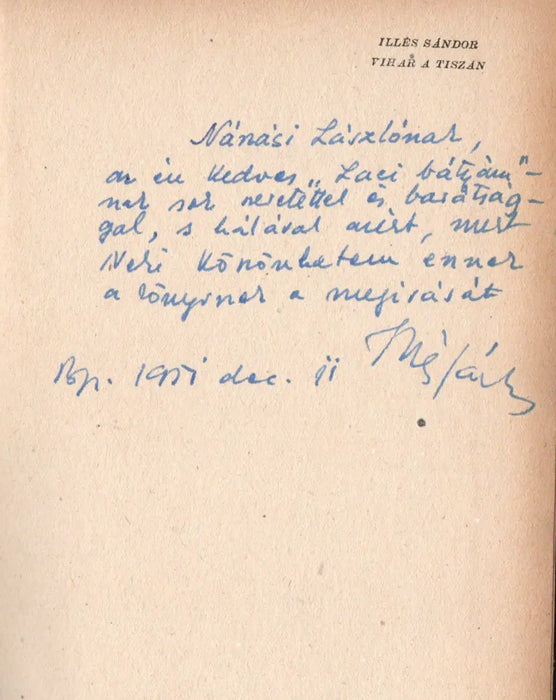 ILLÉS SÁNDOR
VIHAR A TISZÁN
Nánási Lászlónak,
az én kedves „Laci bátyám"-
nak sok szeretettel és barátság-
gal, s hálával azért, mert
Neki köszönhetem ennek
a könyvnek a megírását
Bp. 1951 dec. 11
Illés Sándor